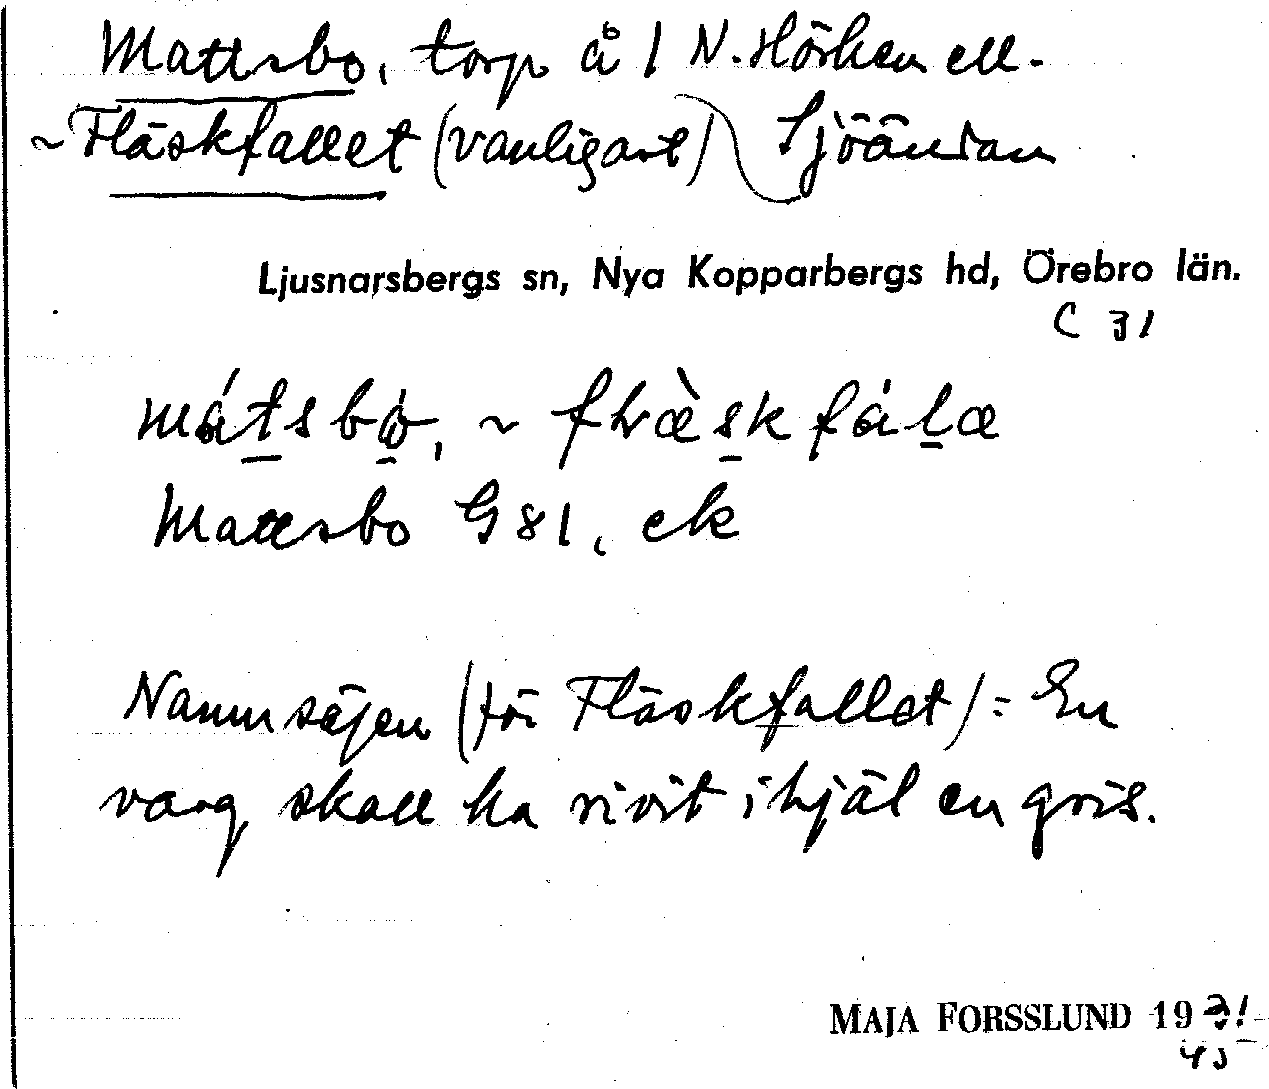 Mattsbo, torp å 1 N. Hörken ell.
~ Fläskfallet (vanligast) Sjöändan
Ljusnarsbergs sn, Nya Kopparbergs hd, Örebro län.
C 31
Mattsbo G 81, ek
Namnsägen (för Fläskfallet) : En
varg skall ha rivit ihjäl en gris.
MAJA FORSSLUND 19